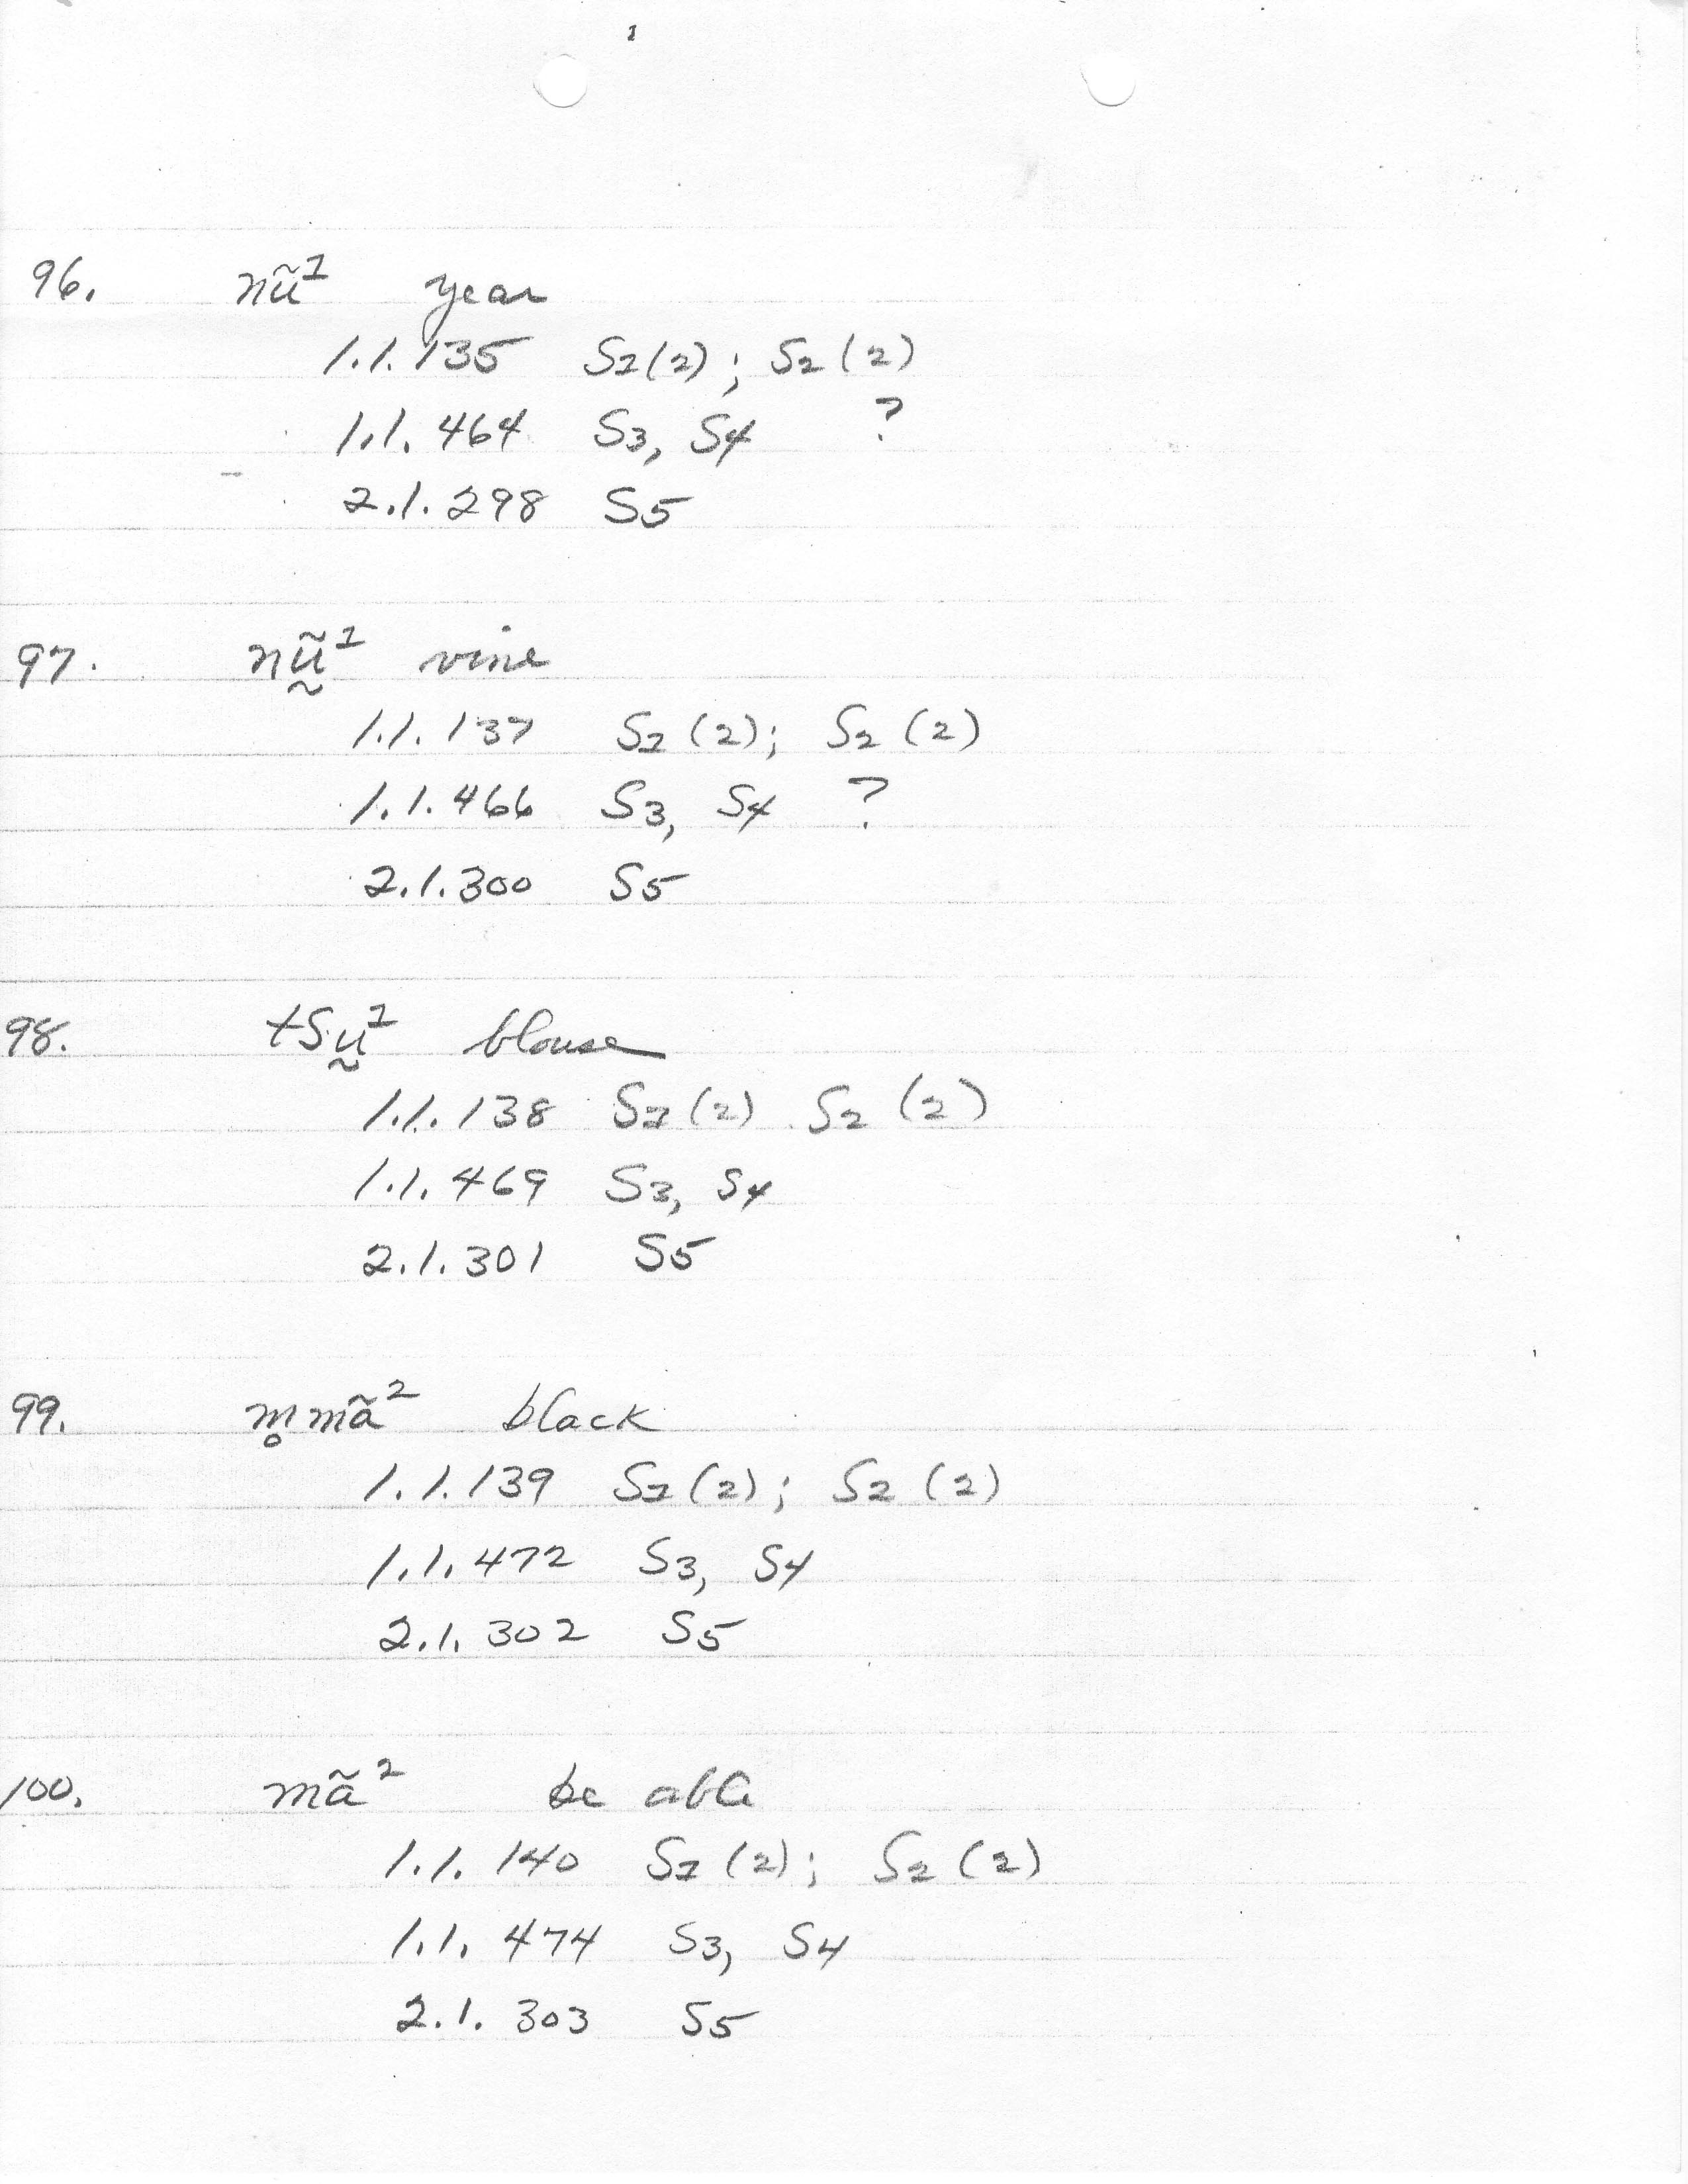 1
96. nũ¹ year
1.1.135 S1(2); S2(2)
1.1.464 S3, S4 ?
2.1.298 S5
97. nṵ̃¹ vine
1.1.137 S1(2); S2(2)
1.1.466 S3, S4 ?
2.1.300 S5
98. tSṵ¹ blouse
1.1.138 S1(2) S2(2)
1.1.469 S3, S4
2.1.301 S5
99. m̥mã² black
1.1.139 S1(2); S2(2)
1.1.472 S3, S4
2.1.302 S5
100. mã² be able
1.1.140 S1(2); S2(2)
1.1.474 S3, S4
2.1.303 S5